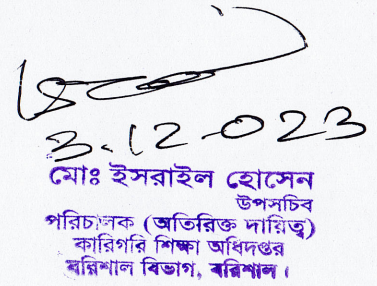 3.12.023
মোঃ ইসরাইল হোসেন
উপসচিব
পরিচালক (অতিরিক্ত দায়িত্ব)
কারিগরি শিক্ষা অধিদপ্তর
বরিশাল বিভাগ, বরিশাল।